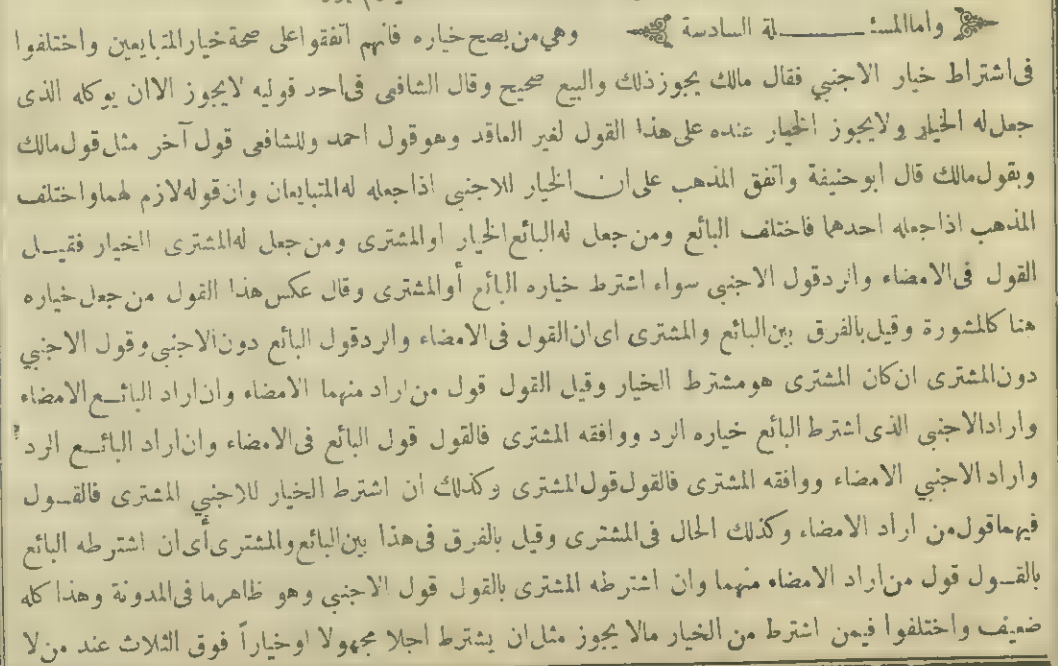 واماالمسئلة السادسة وهي من يصح خياره فانهم اتفقوا على صحة خيار المتبايعين واختلفوا
فى اشتراط خيار الاجنبي فقال مالك يجوز ذلك والبيع صحيح وقال الشافعى فى احد قوليه لايجوز الاان يوكله الذى
جعل له الخيار ولايجوز الخيار عنده على هذا القول لغير العاقد وهو قول احمد وللشافعى قول آخر مثل قول مالك
وبقول مالك قال ابو حنيفة واتفق المذهب على ان الخيار للاجنبي اذا جعله له المتبايعان وان قوله لازم لهما واختلف
المذهب اذا جعله احدهما فاختلف البائع ومن جعل له البائع الخيار اوالمشترى ومن جعل له المشترى الخيار فقيل
القول فى الامضاء والرد قول الاجنبى سواء اشترط خياره البائع أوالمشترى وقال عكس هذا القول من جعل خياره
هنا كالمشورة وقيل بالفرق بين البائع والمشترى اى ان القول فى الامضاء والرد قول البائع دون الاجنبى وقول الاجنبي
دون المشترى ان كان المشترى هو مشترط الخيار وقيل القول قول من اراد منهما الامضاء وان اراد البائع الامضاء
واراد الاجنبي الذى اشترط البائع خياره الرد ووافقه المشترى فالقول قول البائع فى الامضاء وان اراد البائع الرد
واراد الاجنبي الامضاء ووافقه المشترى فالقول قول المشترى وكذلك ان اشترط الخيار للاجنبي المشترى فالقول
فيهما قول من اراد الامضاء وكذلك الحال فى المشترى وقيل بالفرق فى هذا بين البائع والمشترى أى ان اشترطه البائع
بالقول قول من اراد الامضاء منهما وان اشترطه المشترى بالقول قول الاجنبي وهو ظاهر ما فى المدونة وهذا كله
ضعيف واختلفوا فيمن اشترط من الخيار مالا يجوز مثل ان يشترط اجلا مجهولا او خياراً فوق الثلاث عند من لا